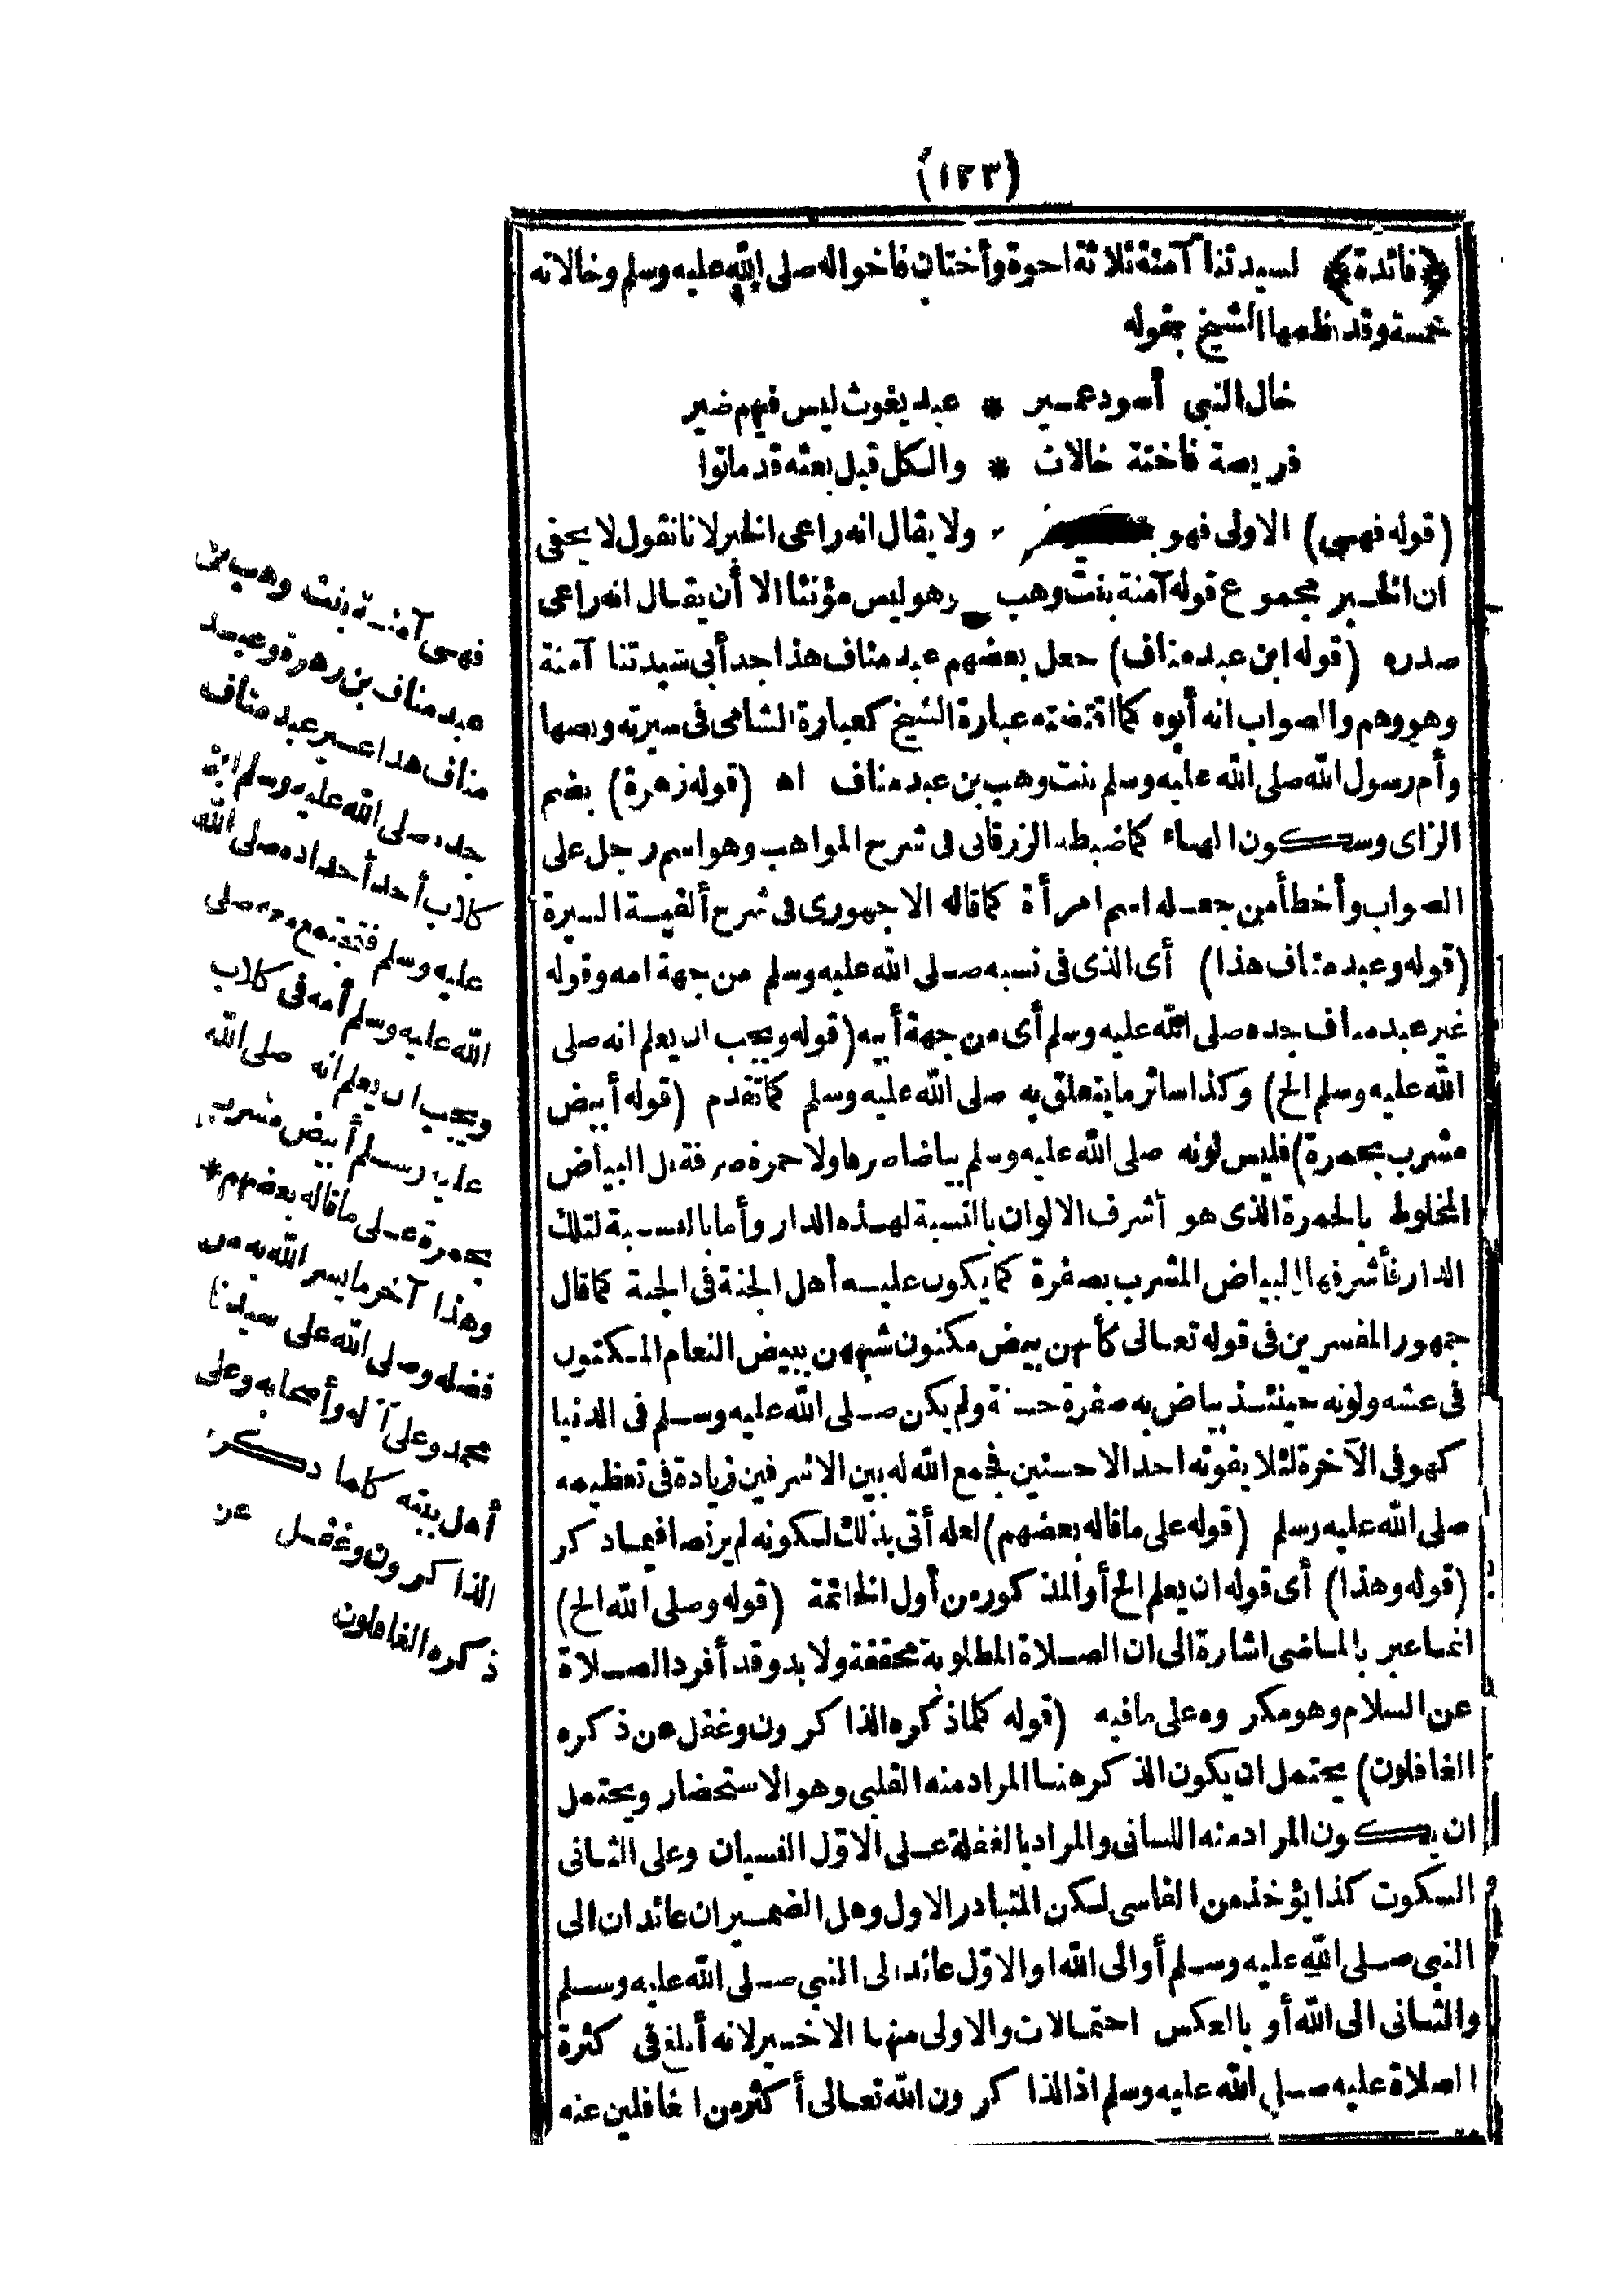 (١٢٣)
﴿فائدة﴾ لسيدتنا آمنة ثلاثة اخوة وأختان فاخواله صلى الله عليه وسلم وخالاته
خمسة وقد نظمها الشيخ بقوله
خال النبي أسود عمير * عبد يغوث ليس فيهم ضير
فريصة فاختة خالات * والكل قبل بعثه قد ماتوا
(قوله فهسى) الاولى فهو ولا يقال انه راعى الخبر لانا نقول لا يخفى
ان الخبر مجموع قوله آمنة بنت وهب وهو ليس مؤنثا الا أن يقال انه راعى
صدره (قوله ابن عبد مناف) جعل بعضهم عبد مناف هذا جد أبى سيدتنا آمنة
وهو وهم والصواب انه أبوه كما اقتضته عبارة الشيخ كعبارة الشامى فى سيرته ونصها
وأم رسول الله صلى الله عليه وسلم بنت وهب بن عبد مناف اه (قوله زهرة) بضم
الزاى وسكون الهاء كما ضبطه الزرقانى فى شرح المواهب وهو اسم رجل على
الصواب وأخطأ من جعله اسم امرأة كما قاله الاجهورى فى شرح ألفية السيرة
(قوله وعبد مناف هذا) أى الذى فى نسبه صلى الله عليه وسلم من جهة امه وقوله
غير عبد مناف جده صلى الله عليه وسلم أى من جهة أبيه (قوله ويجب ان يعلم انه صلى
الله عليه وسلم الخ) وكذا سائر ما يتعلق به صلى الله عليه وسلم كما تقدم (قوله أبيض
مشرب بحمرة) فليس لونه صلى الله عليه وسلم بياضا صرفا ولا حمرة صرفة بل البياض
المخلوط بالحمرة الذى هو أشرف الالوان بالنسبة لهذه الدار وأما بالنسبة لتلك
الدار فأشرفها البياض المشرب بصفرة كما يكون عليه أهل الجنة فى الجنة كما قال
جمهور المفسرين فى قوله تعالى كأنهن بيض مكنون شبههن ببيض النعام المكنون
فى عشه ولونه حينئذ بياض به صفرة حسنة ولم يكن صلى الله عليه وسلم فى الدنيا
كهو فى الآخرة لئلا يفوته احد الاحسنين فجمع الله له بين الاشرفين زيادة فى تعظيمه
صلى الله عليه وسلم (قوله على ما قاله بعضهم) لعله أتى بذلك لكونه لم ير نصا فيما ذكر
(قوله وهذا) أى قوله ان يعلم الخ أو المذكور من أول الخاتمة (قوله وصلى الله الخ)
انما عبر بالماضى اشارة الى ان الصلاة المطلوبة محققة ولا بد وقد أفرد الصلاة
عن السلام وهو مكروه على ما فيه (قوله كلما ذكره الذاكرون وغفل عن ذكره
الغافلون) يحتمل ان يكون الذكر هنا المراد منه القلبى وهو الاستحضار ويحتمل
ان يكون المراد منه اللسانى والمراد بالغفلة على الاوّل النسيان وعلى الثانى
السكوت كذا يؤخذ من الفاسى لكن المتبادر الاول وهل الضميران عائدان الى
النبى صلى الله عليه وسلم أو الى الله او الاوّل عائد الى النبي صلى الله عليه وسلم
والثانى الى الله أو بالعكس احتمالات والاولى منها الاخير لانه أبلغ فى كثرة
الصلاة عليه صلى الله عليه وسلم اذ الذاكرون الله تعالى أكثر من الغافلين عنه
فهسى آمنة بنت وهب بن
عبد مناف بن زهرة وعبد
مناف هذا غير عبد مناف
جده صلى الله عليه وسلم ابن
كلاب أحد أجداده صلى الله
عليه وسلم فتجتمع معه صلى
الله عليه وسلم أمه فى كلاب
ويجب ان يعلم انه صلى الله
عليه وسلم أبيض مشرب
بحمرة على ما قاله بعضهم *
وهذا آخر ما يسر الله به من
فضله وصلى الله على سيدنا
محمد وعلى آله وأصحابه وعلى
أهل بيته كلما ذكره
الذاكرون وغفل عن
ذكره الغافلون